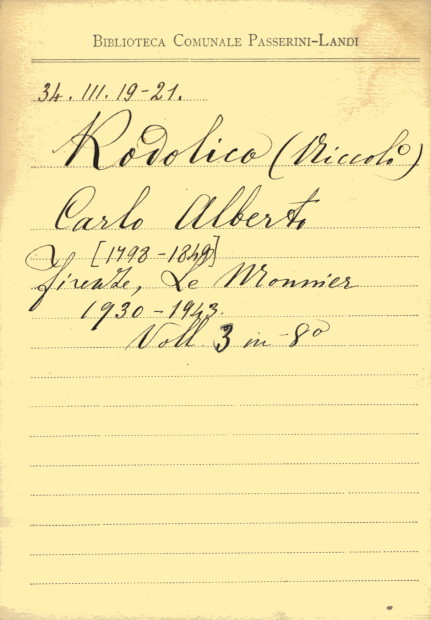 BIBLIOTECA COMUNALE PASSERINI-LANDI
34. III. 19-21.
Rodolico (Niccolò)
Carlo Alberto
[1798-1849]
Firenze, Le Monnier
1930-1943.
Voll 3 in-8º